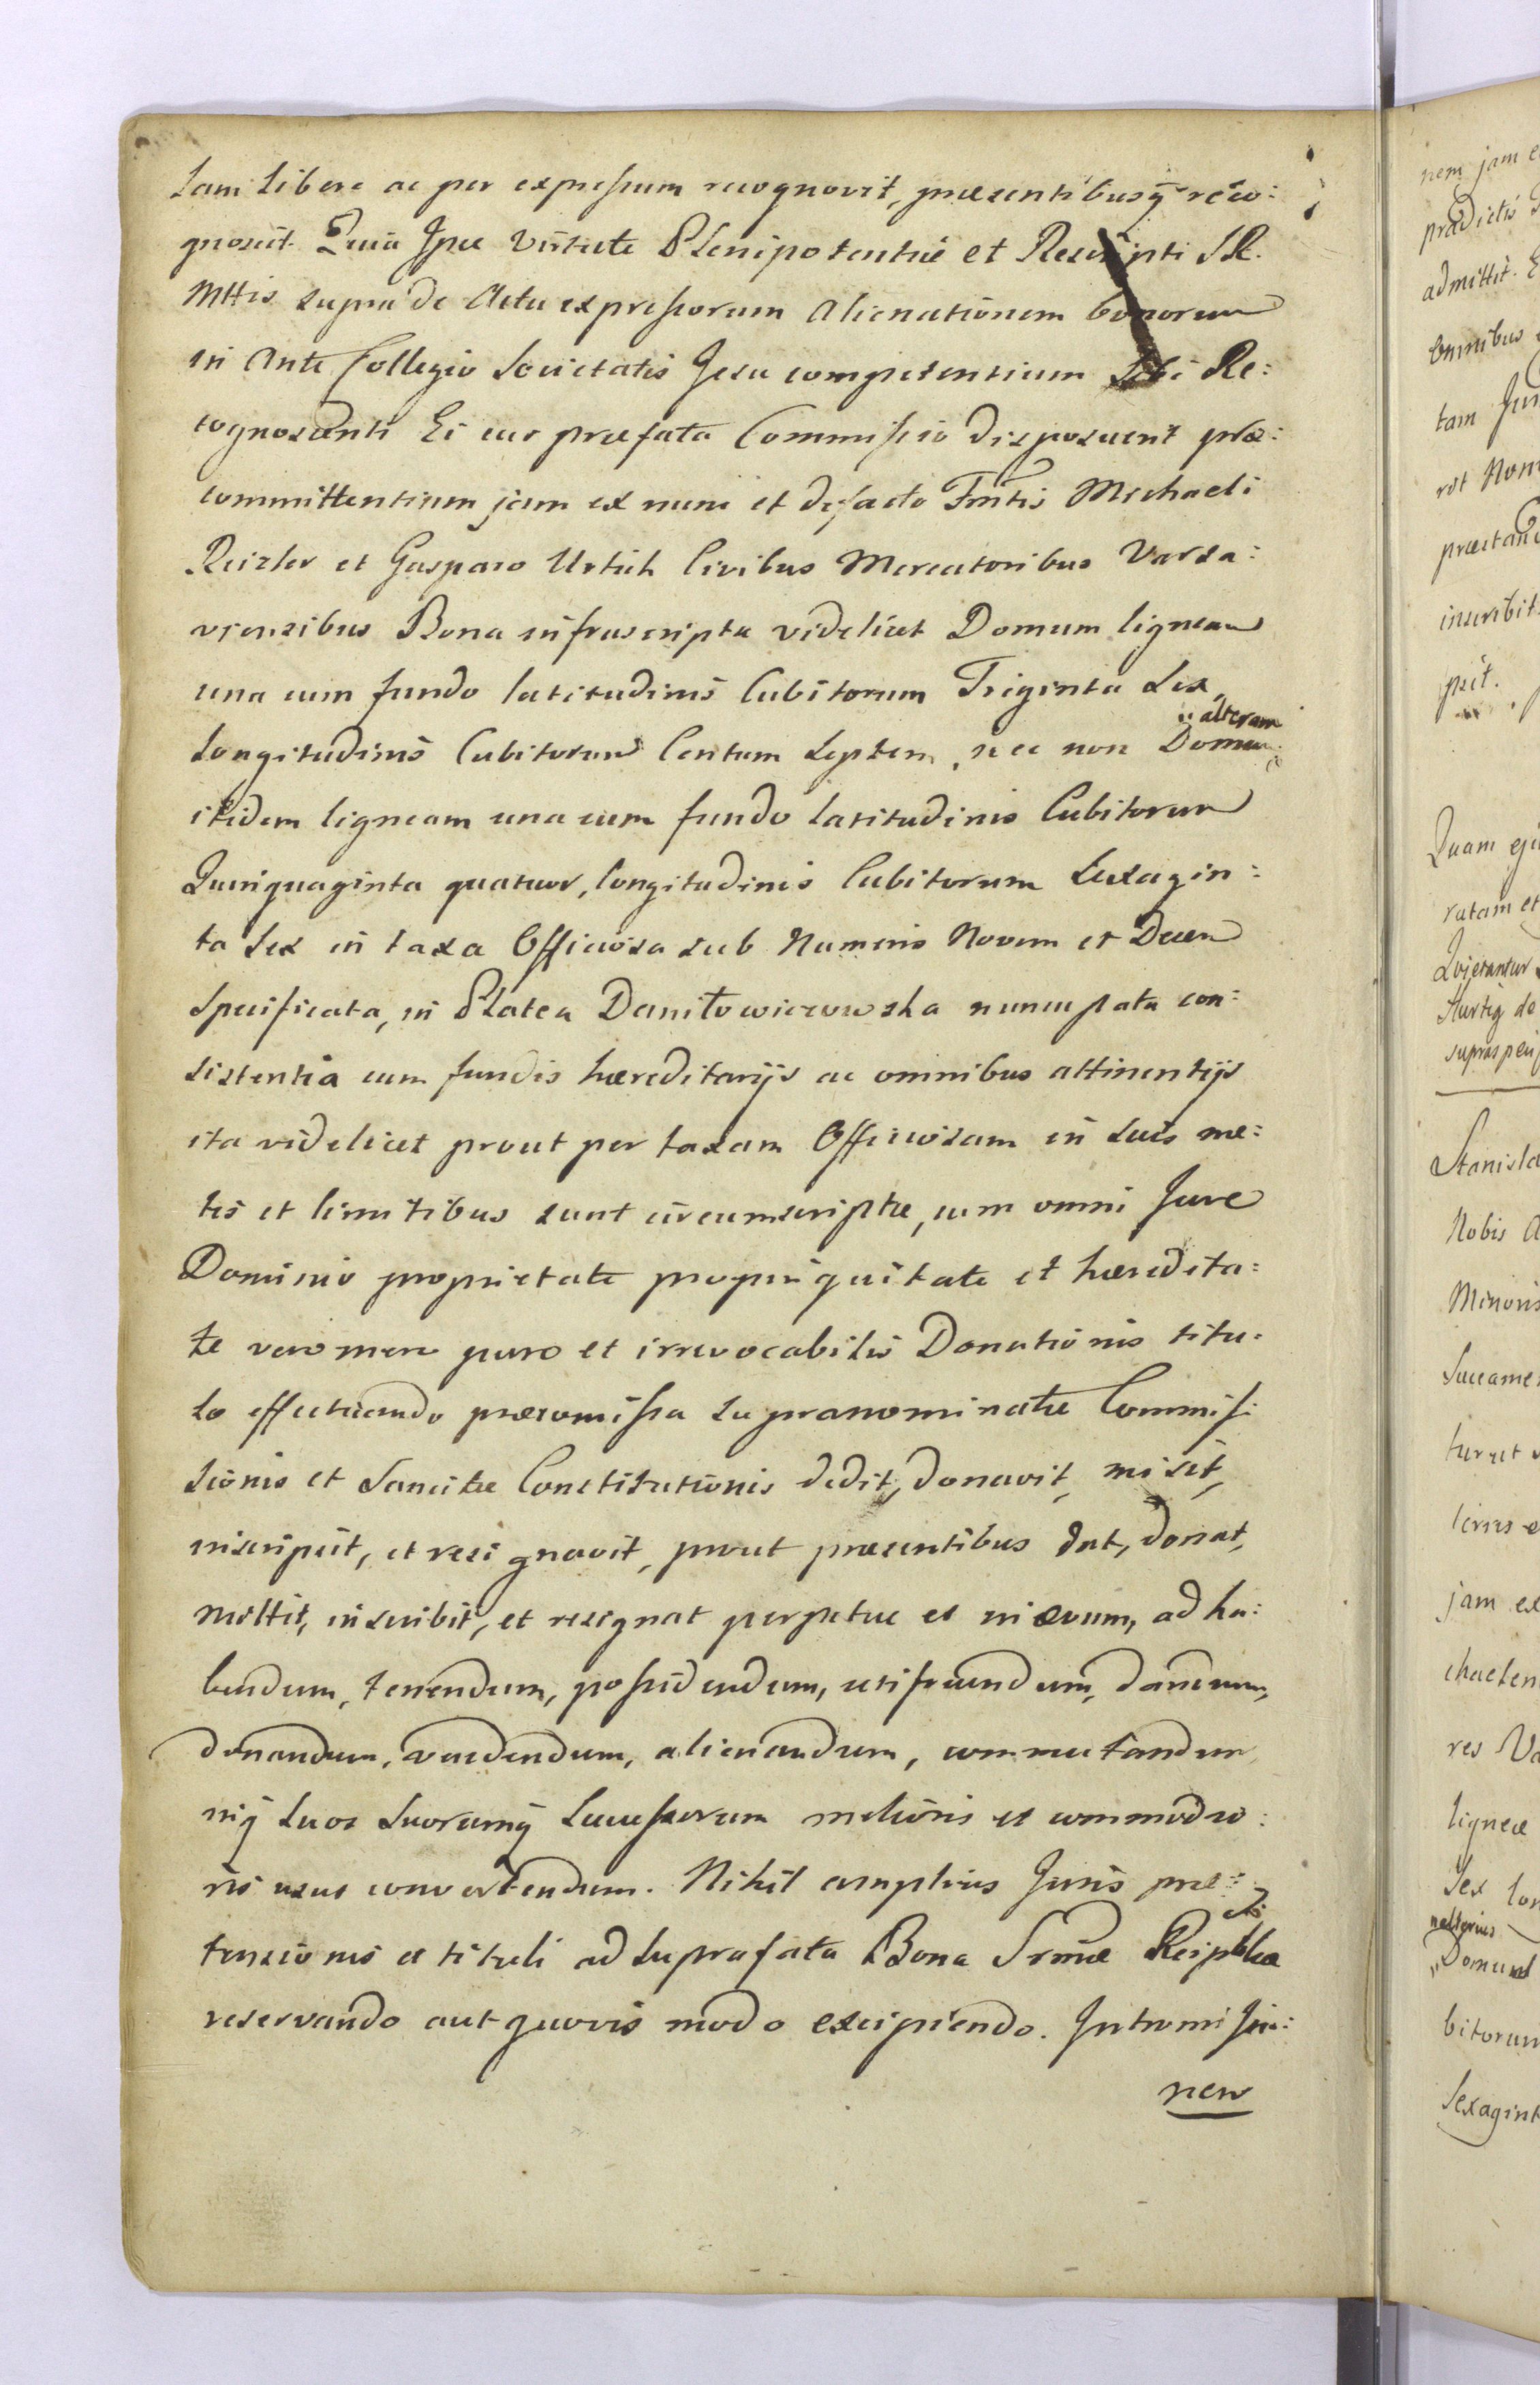 sam libere ac per expressum recognovit, præsentibusq reco:
gnoscit. Quia Ipse Virtute Plenipotentiæ et Rescripti S.R.
Mttis supra de Actu expressorum Alienationem bonorum
in Ante Collegio Societatis Jesu competentium Sibi Re:
cognoscenti Ei eas præfata Commissio disposuerit præ:
committentium jam ex nunc et defacto Fmtis Michaeli
Reizler et Gasparo Urtich Civibus Mercatoribus Varsa:
viensibus Bona infrascripta videlicet Domum ligneam
una cum fundo latitudinis Cubitorum Triginta Sex,
Longitudinis Cubitorum Centum Septem, nec non alteram Domum
itidem ligneam una cum fundo latitudinis Cubitorum
Quinquaginta quatuor, longitudinis Cubitorum Sexagin:
ta Sex in taxa Officiosa sub Numeris Novem et Decem
Specificata, in Platea Daniłowiczowska nuncupata con:
sistentia cum fundis hæreditarijs ac omnibus attinentijs
ita videlicet prout per taxam Officiosam in suis me:
tis et limitibus sunt circumscriptæ, cum omni Jure
Dominio proprietate propinquitate et hæredita:
te vero mero puro et irrevocabilis Donationis titu:
lo effectuando præcomissa supranominatæ Commis:
sionis et Sancitæ Constitutionis dedit, donavit, misit,
inscripsit, et resignavit, prout præsentibus dat, donat,
mittit, inscribit, et resignat perpetue et in ævum, ad ha:
bendum, tenendum, possidendum, utifruendum, dandum,
donandum, vendendum, alienandum, commutandum
inq suos suorumq Successorum melioris et commodio:
ris usus convertendum. Nihil amplius Juris præ:
tensionis et tituli ad suprafata Bona Srmæ Reipblcæ
reservando aut quovis modo excipiendo. Intromissio:
nem
nem jam
prædictis
admittit.
Omnibus
tam
rot Nom
inscribit
psit.
Quam eju
ratam et
Hurtig de
Stanisla
Nobis
Minoris
jam ex
res Va
ligneæ
Sex lon
Domus
bitorum
Sexagint